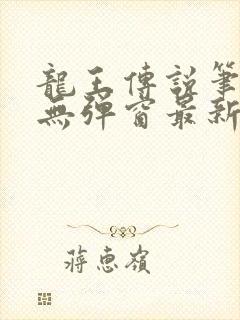 龍王傳說筆
無彈窗最新
蔣惠嶺